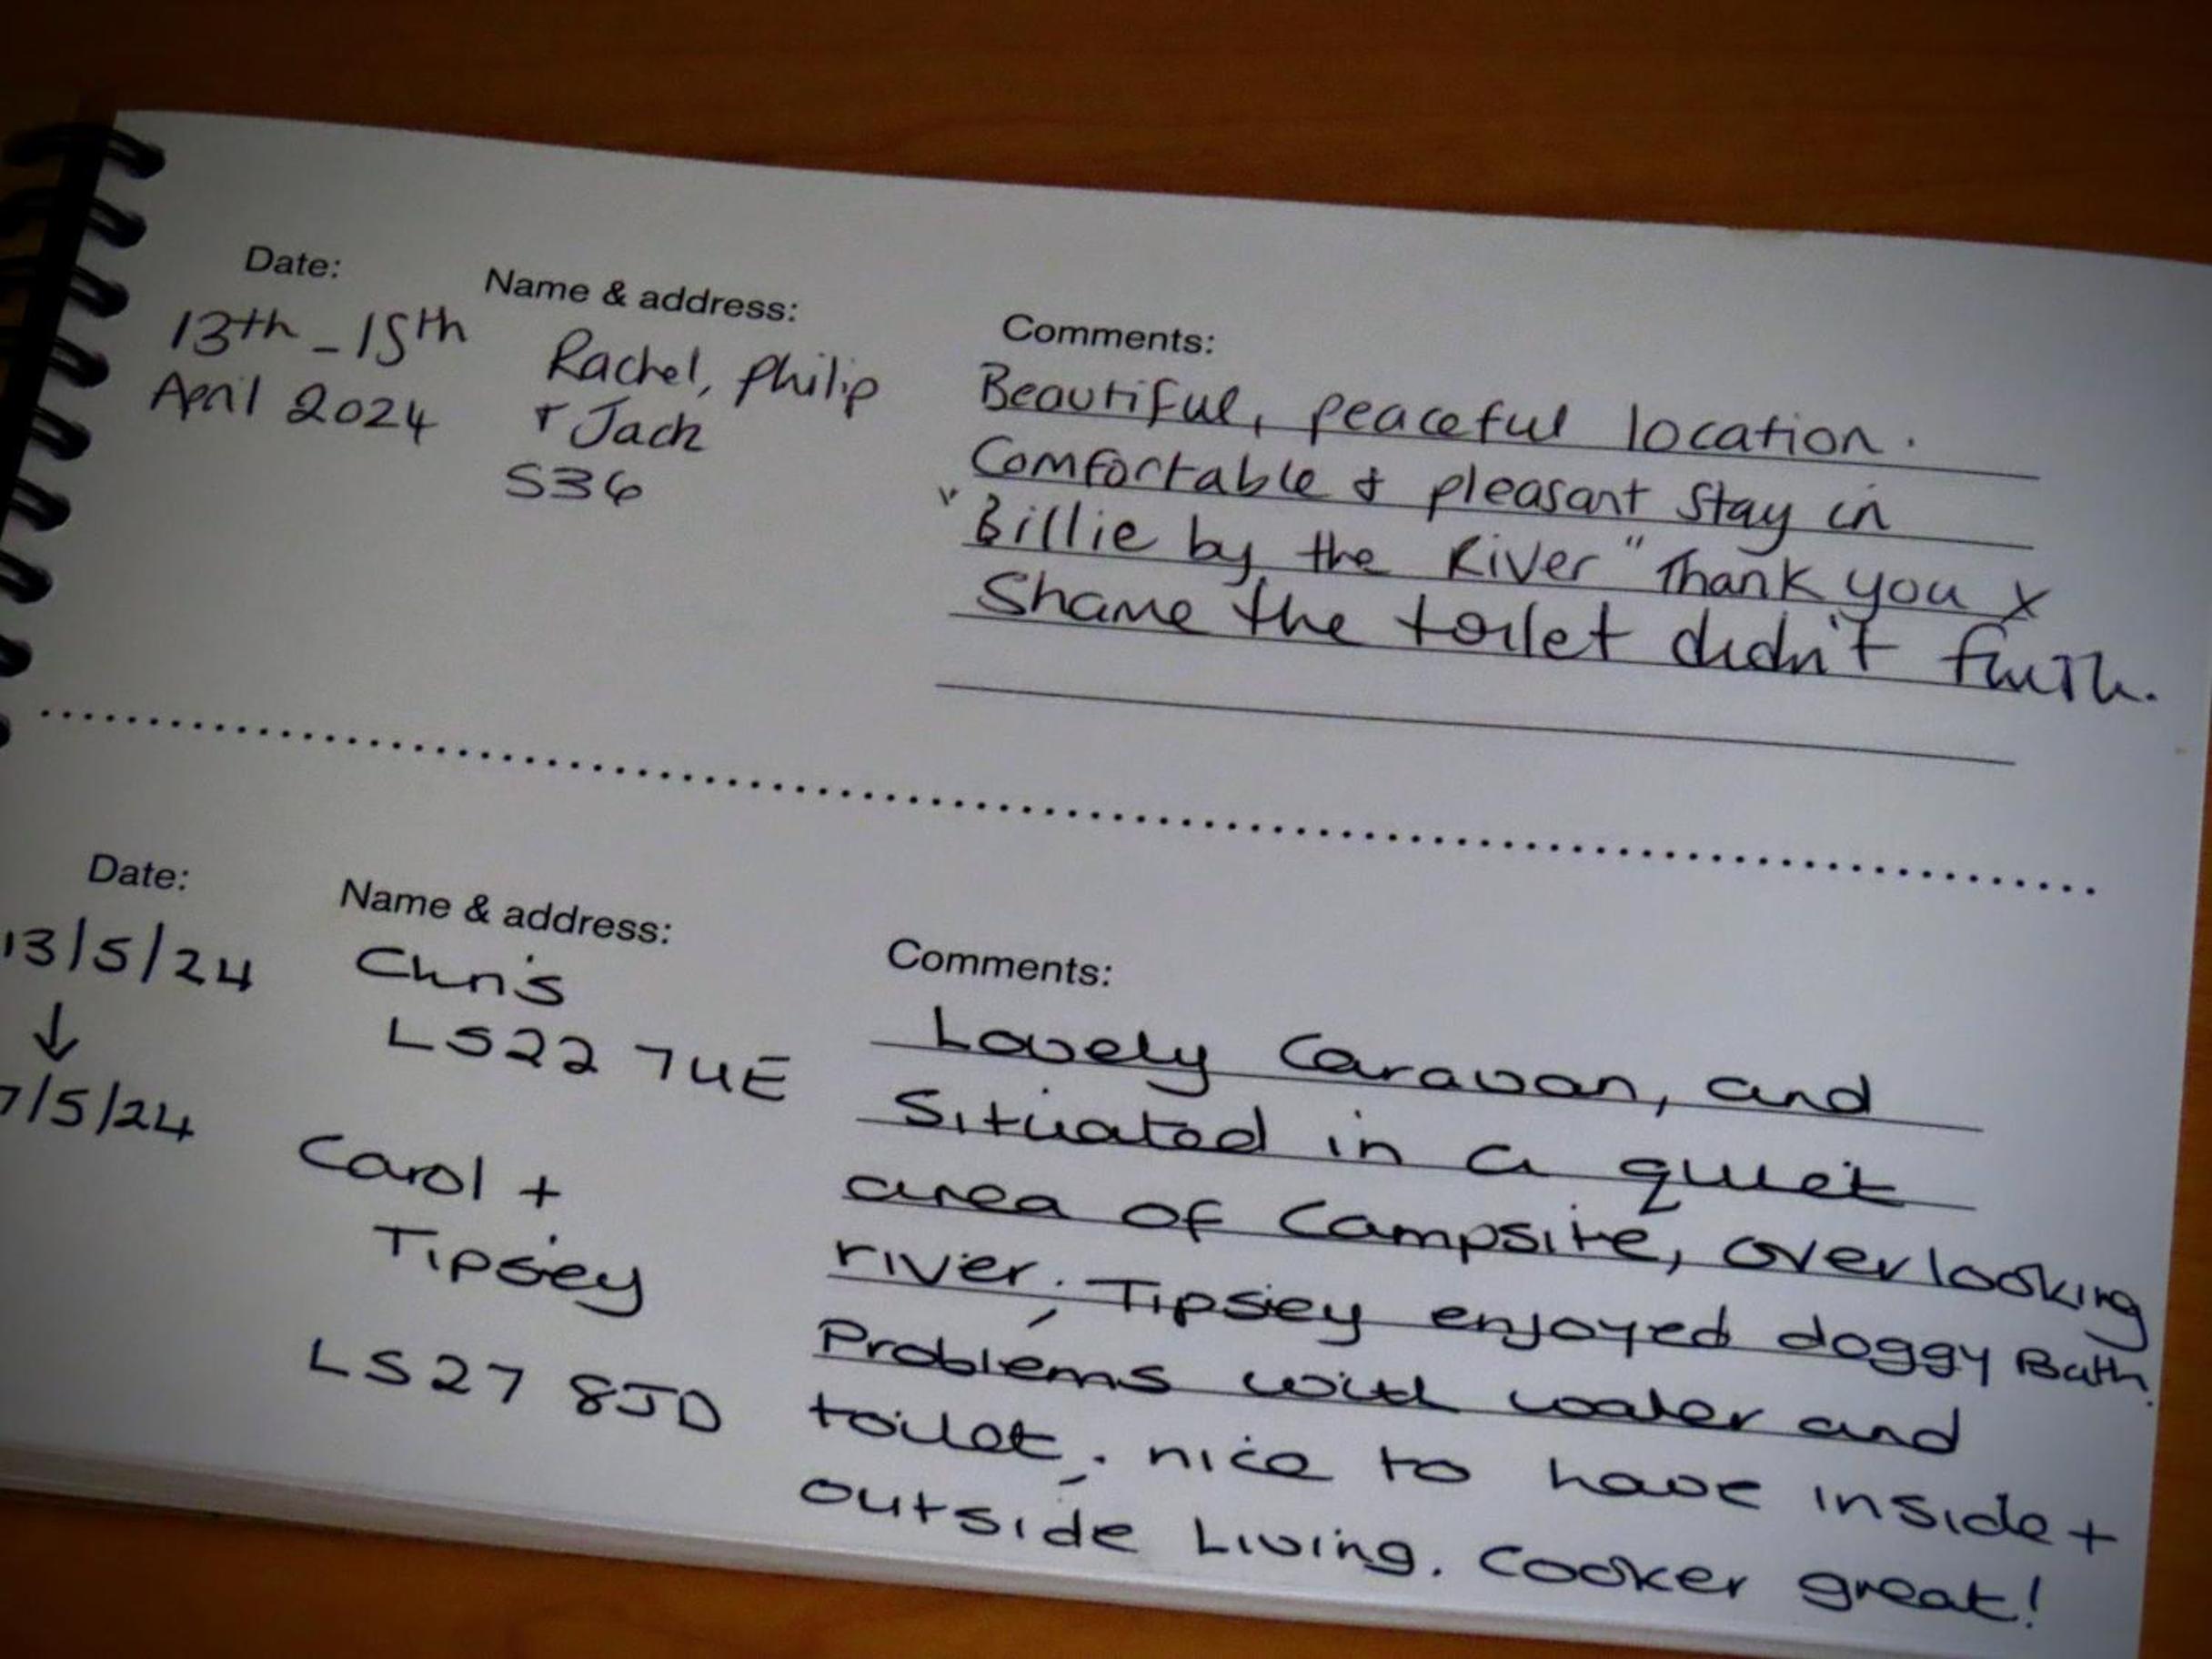 Date:
Name & address:
Comments:
13th - 15th
April 2024
Rachel, Philip
+ Jack
S36
Beautiful, peaceful location.
Comfortable & pleasant stay in
"Billie by the River" Thank you x
Shame the toilet didn't flush.
Date:
Name & address:
Comments:
13/5/24
↓
7/5/24
Chris
LS22 7UE
Carol +
Tipsey
LS27 8JD
Lovely Caravan, and
Situated in a quiet
area of Campsite, overlooking
river; Tipsey enjoyed doggy Bath.
Problems with water and
toilet,. nice to have inside +
outside Living. Cooker great!